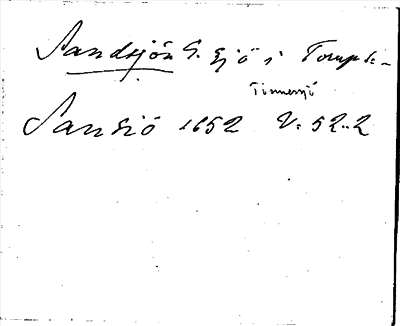 Sandsjön S. sjö i Torups s:n
Tinnersjö
Sansiö 1652 V: 52..2